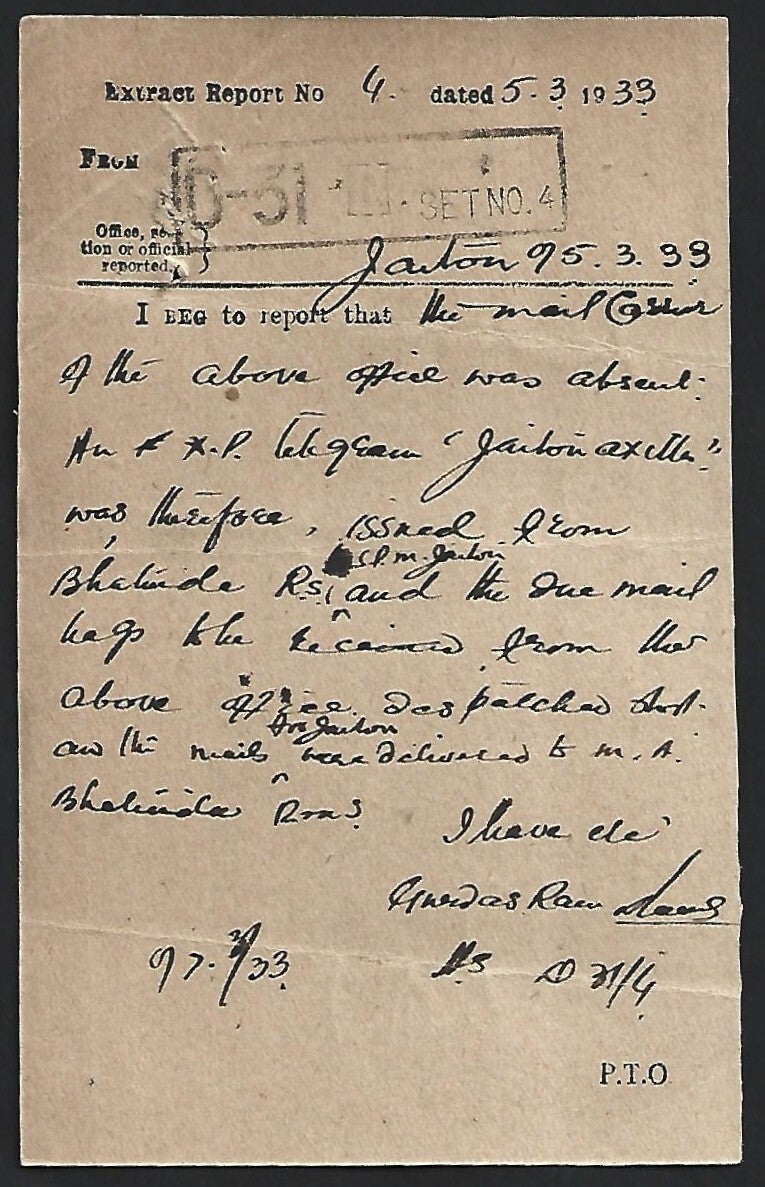 Extract Report No 4. dated 5.3 1933
FROM
D-31 SET NO. 4
Office, sec-
tion or official
reported.
Jaiton 95.3.33
I BEG to report that the mail Carrier
of the above office was absent.
An X.P. telegram "Jaiton
was therefore, issued from
S.P.M. Jaiton
Bhatinda Rs, and the due mail
bags to be received from the
above office despatched
for Jaiton
and the mails were delivered to M.A.
Bhatinda Rms.
I have etc
Gurdas Ram
97.3/33 Hs D 31/4
P.T.O